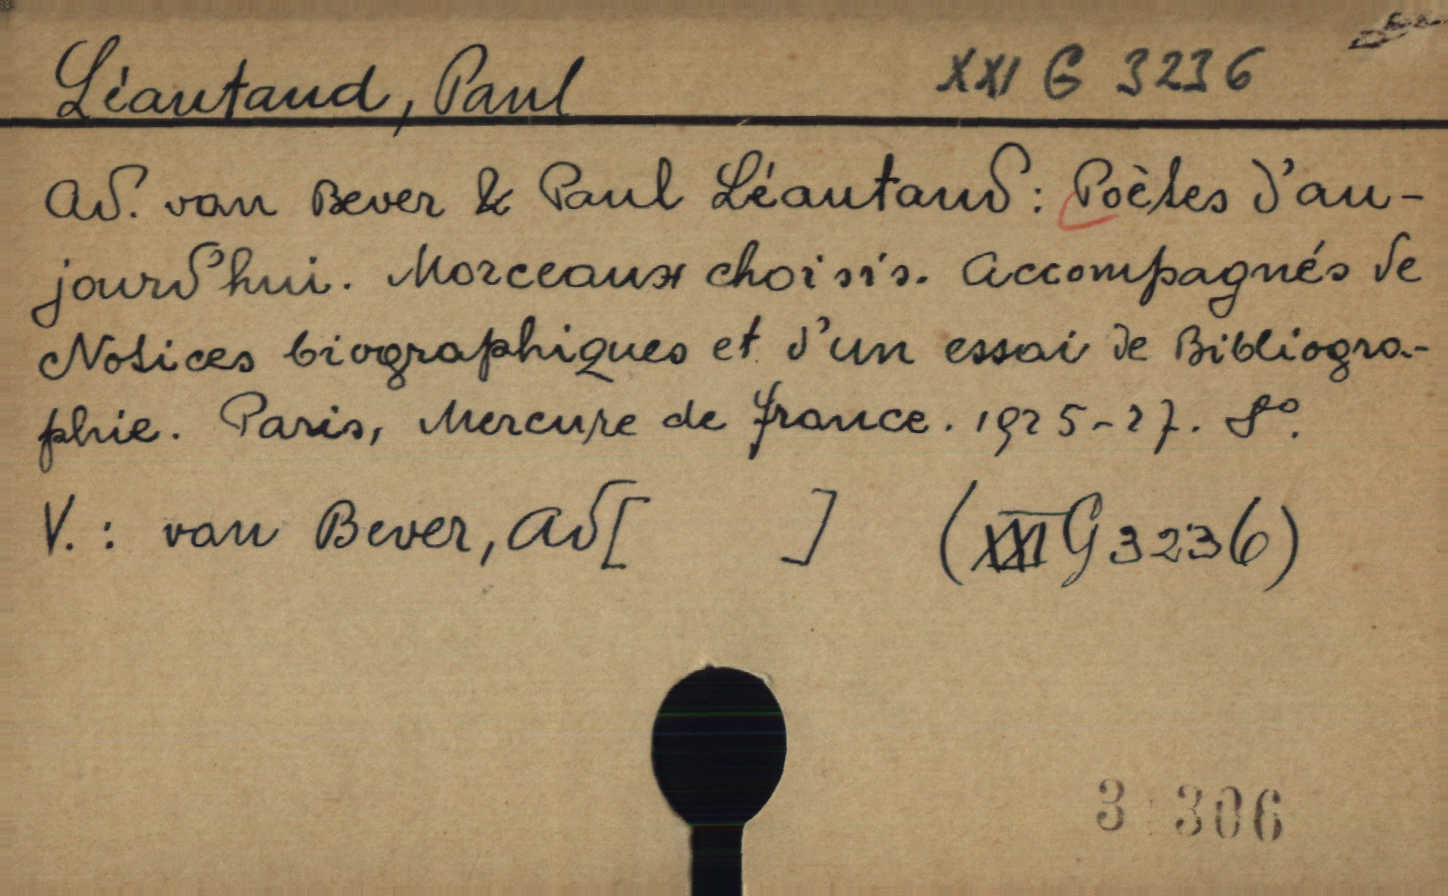 Léautaud, Paul XXI G 3236
Ad. van Bever & Paul Léautaud: Poètes d'au-
jourd'hui. Morceaux choisis. Accompagnés de
Notices biographiques et d'un essai de Bibliogra-
phie. Paris, Mercure de France. 1925-27. 8°.
V.: van Bever, Ad[ ] (XXI G 3236)
3 306